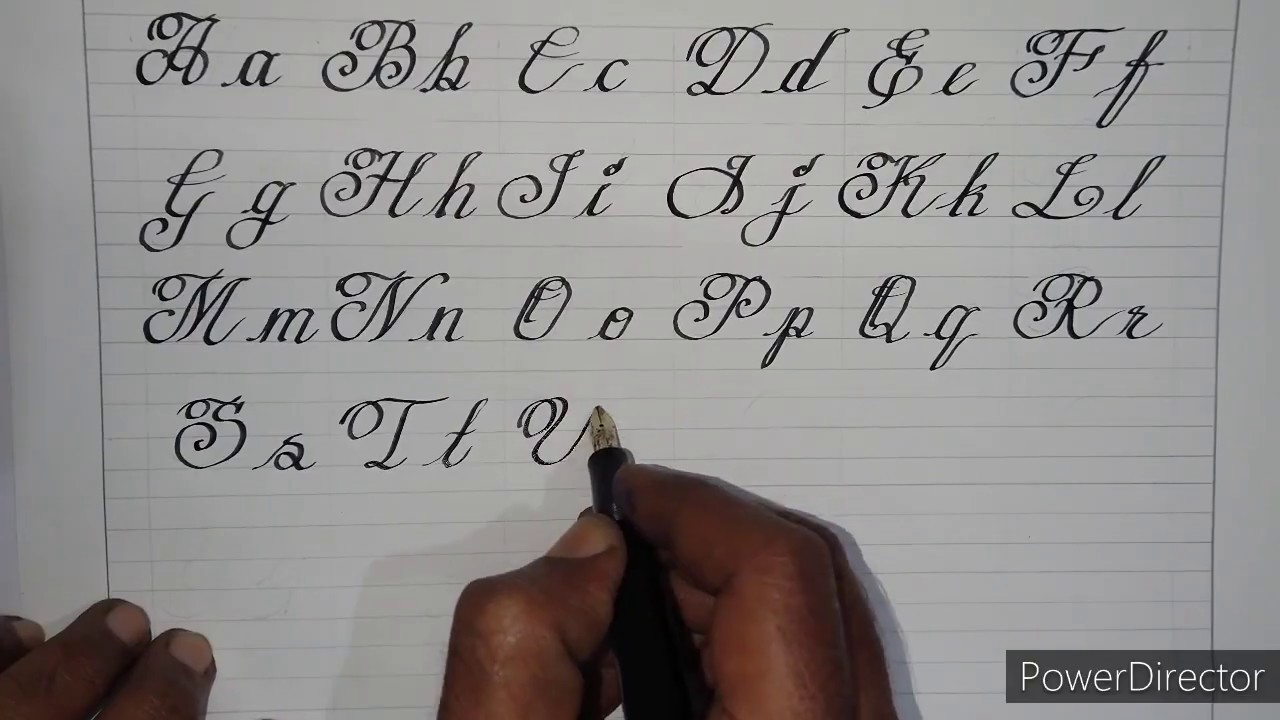 A a B b C c D d E e F f
G g H h I i J j K k L l
M m N n O o P p Q q R r
S s T t U
PowerDirector